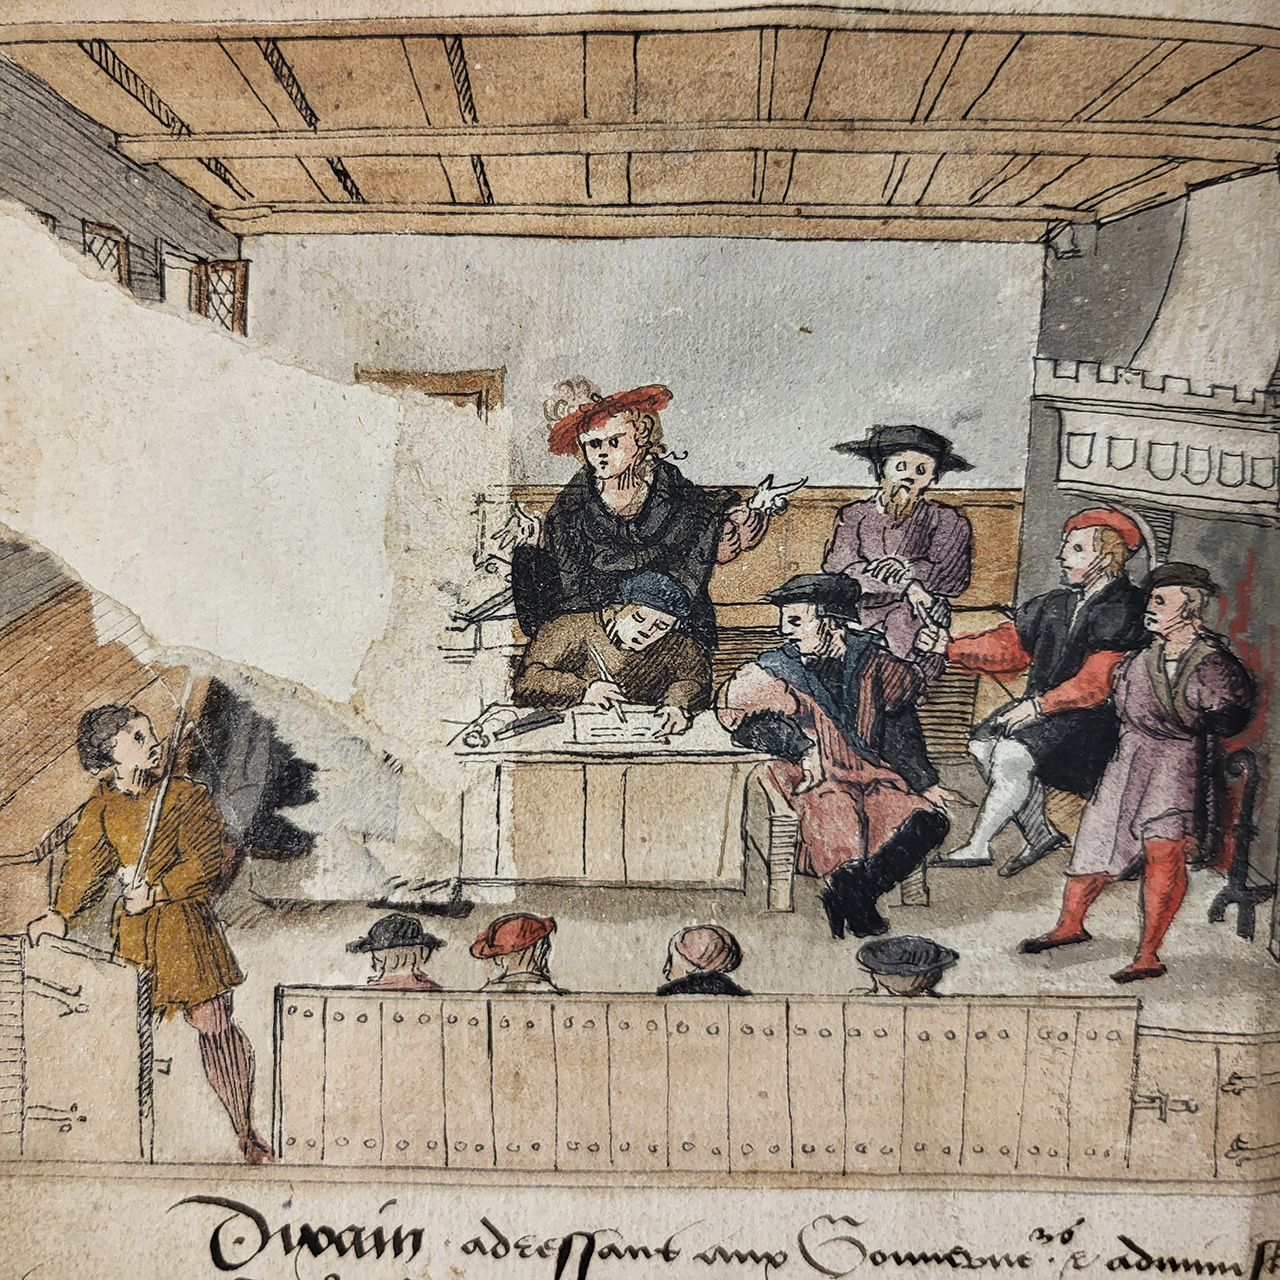 Dixain adressant aux Gouverne^rs & adminis